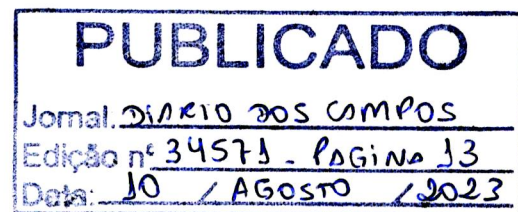 PUBLICADO
Jornal. DIARIO DOS CAMPOS
Edição nº 34571 - PAGINA 13
Data: 10 / AGOSTO / 2023